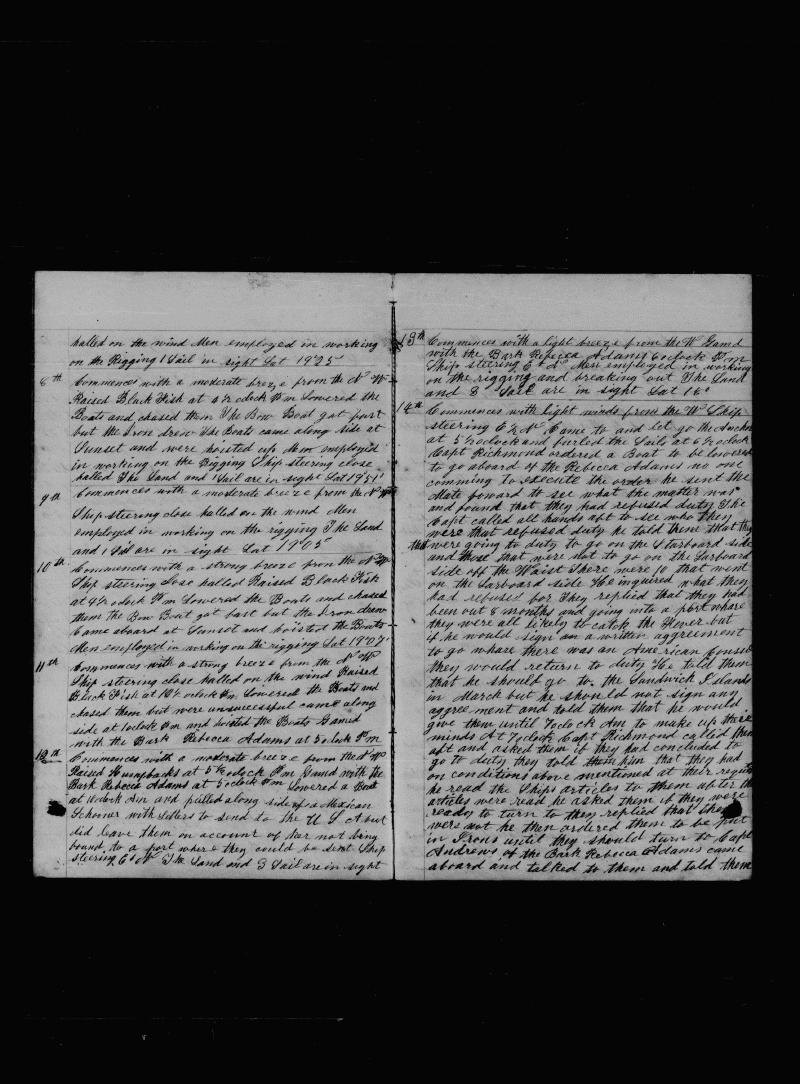 halled on the wind Men employed in working
on the Rigging 1 Sail in sight Lat 19°25
8th Commences with a moderate breeze from the N W
Raised Black Fish at 4½ oclock Pm Lowered the
Boats and chased them The Bow Boat got fast
but the Iron drew The Boats came along side at
Sunset and were hoisted up Men employed
in working on the Rigging Ship steering close
halled The Land and 1 Sail are in sight Lat 19°51'
9th Commences with a moderate breeze from the N W
Ship steering close halled on the wind Men
employed in working on the rigging The Land
and 1 Sail are in sight Lat 19°05
10th Commences with a strong breeze from the N W
Ship steering close halled Raised Black Fish
at 4½ oclock Pm Lowered the Boats and chased
them the Bow Boat got fast but the Iron drew
Came aboard at Sunset and hoisted the Boats
Men employed in working on the rigging Lat 19°07'
11th Commences with a strong breeze from the N W
Ship steering close halled on the wind Raised
Black Fish at oclock Pm Lowered the Boats and
chased them but were unsuccessful came along
side at 1 oclock Pm and hoisted the Boats Gamed
with the Bark Rebecca Adams at 5 oclock Pm
12th Commences with a moderate breeze from the N W
Raised Humpbacks at 5½ oclock Pm Gamd with the
Bark Rebecca Adams at 5 oclock Pm Lowered a Boat
at oclock Am and pulled along side of a Mexican
Schooner with letters to send to the U S A but
did leave them on account of her not being
bound to a port where they could be sent Ship
steering E N The Land and 3 Sail are in sight
13th Commences with a light breeze from the W Gamd
with the Bark Rebecca Adams 6 oclock Pm
Ship steering Men employed in working
on the rigging and breaking out The Land
and 3 Sail are in sight Lat 18°
14th Commences with light winds from the W Ship
steering E ½ N Came to and let go the Anchor
at 5½ oclock and furled the Sails at 6½ oclock
Capt Richmond ordered a Boat to be lowered
to go aboard of the Rebecca Adams no one
comming to execute the order he sent the
Mate foward to see what the matter was
and found that they had refused duty The
Capt called all hands aft to see who they
were that refused duty he told them that they
that were going to duty to go on the Starboard side
and those that were not to go on the Larboard
side off the Waist There were 10 that went
on the Larboard side He inquired what they
had refused for They replied that they had
been out 8 months and going into a port whare
they were all likely to catch the Fever but
if he would sign an a written aggreement
to go whare there was an American Consul
they would return to duty He told them
that he should go to the Sandwick Islands
in March but he should not sign any
aggreement and told them that he would
give them until 7 oclock Am to make up their
minds At 7 oclock Capt Richmond called them
aft and asked them if they had concluded to
go to duty they told him that they had
on conditions above mentioned at their request
he read the Ships articles to them after the
articles were read he asked them if they were
ready to turn to they replied that they
were not he then ordered them to be put
in Irons until they should turn to Capt
Andrews of the Bark Rebecca Adams came
aboard and talked to them and told them